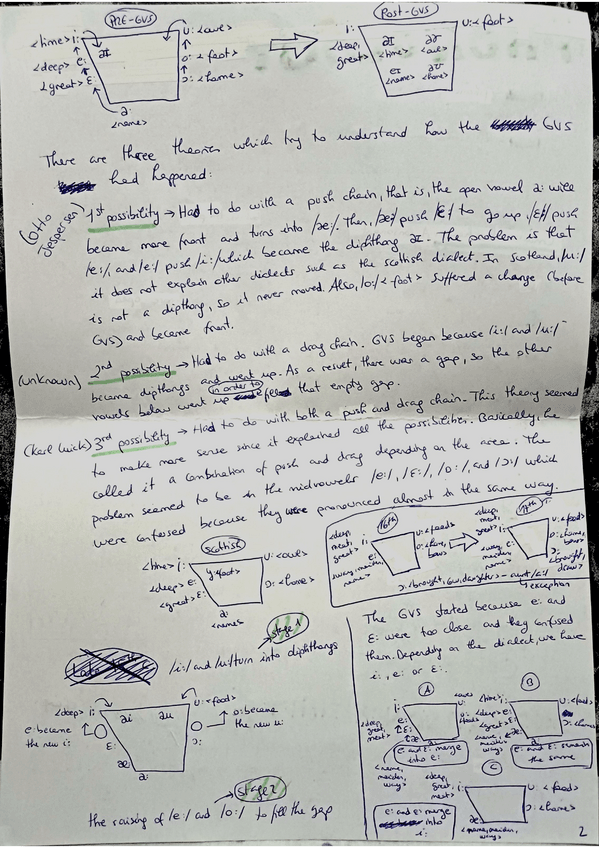 PRE-GVS
Post-GVS
<time> i: aI u: <owl>
<deep> e: o: <foot>
<great> ɛ: ɔ: <home>
a:
<name>
i: <deep, great> u: <foot>
aI <time> <owl>
eI <name> <home>
There are three theories which try to understand how the GVS
had happened:
(Otto Jespersen)
1st possibility → Had to do with a push chain, that is, the open vowel a: will
became more front and turns into /æ/. Then, /æ/ push /ɛ/ to go up. /ɛ/ push
/e:/, and /e:/ push /i:/ which became the diphthong aI. The problem is that
it does not explain other dialects such as the scottish dialect. In Scotland, /u:/
is not a dipthong, so it never moved. Also, /o:/ <foot> suffered a change (before
GVS) and became front.
(unknown) 2nd possibility → Had to do with a drag chain. GVS began because /i:/ and /u:/
became dipthongs and went up. As a result, there was a gap, so the other
vowels below went up in order to fill that empty gap.
(Karl Luick) 3rd possibility → Had to do with both a push and drag chain. This theory seemed
to make more sense since it explained all the possibilities. Basically, he
called it a combination of push and drag depending on the area. The
problem seemed to be in the midvowels /e:/, /ɛ:/, /o:/, and /ɔ:/ which
were confused because they were pronounced almost in the same way.
Scottish
<time> i: u: <owl>
<deep> e: y: <foot>
<great> ɛ: ɔ: <home>
a:
<name>
16th
17th
<deep, meat, great> i: u: <food>
e: o: <home, bow>
sway, maiden, name>
<deep, meat, great> i: u: <food>
sway, maiden, name> o: <home, bow>
ɔ: <brought, draw>
exception
stage 1
/i:/ and /u:/ turn into diphthongs
<deep> i: ai au u: <food>
e: became the new i:
o: became the new u:
ɛ: ɔ:
æ a:
stage 2
the raising of /e:/ and /o:/ to fill the gap
The GVS started because e: and
ɛ: were too close and they confused
them. Depending on the dialect, we have
i:, e: or ɛ:.
A
<deep, great, meat>
e: and ɛ: merge into e:
<name, maiden, way>
B
<time> i: u: <food>
<deep> e:
<great> ɛ:
<name, maiden, way>
e: and ɛ: remain the same
C
<deep, great, meat> i: u: <food>
o: <home>
æ <name, maiden, way>
e: and ɛ: merge into i:
2